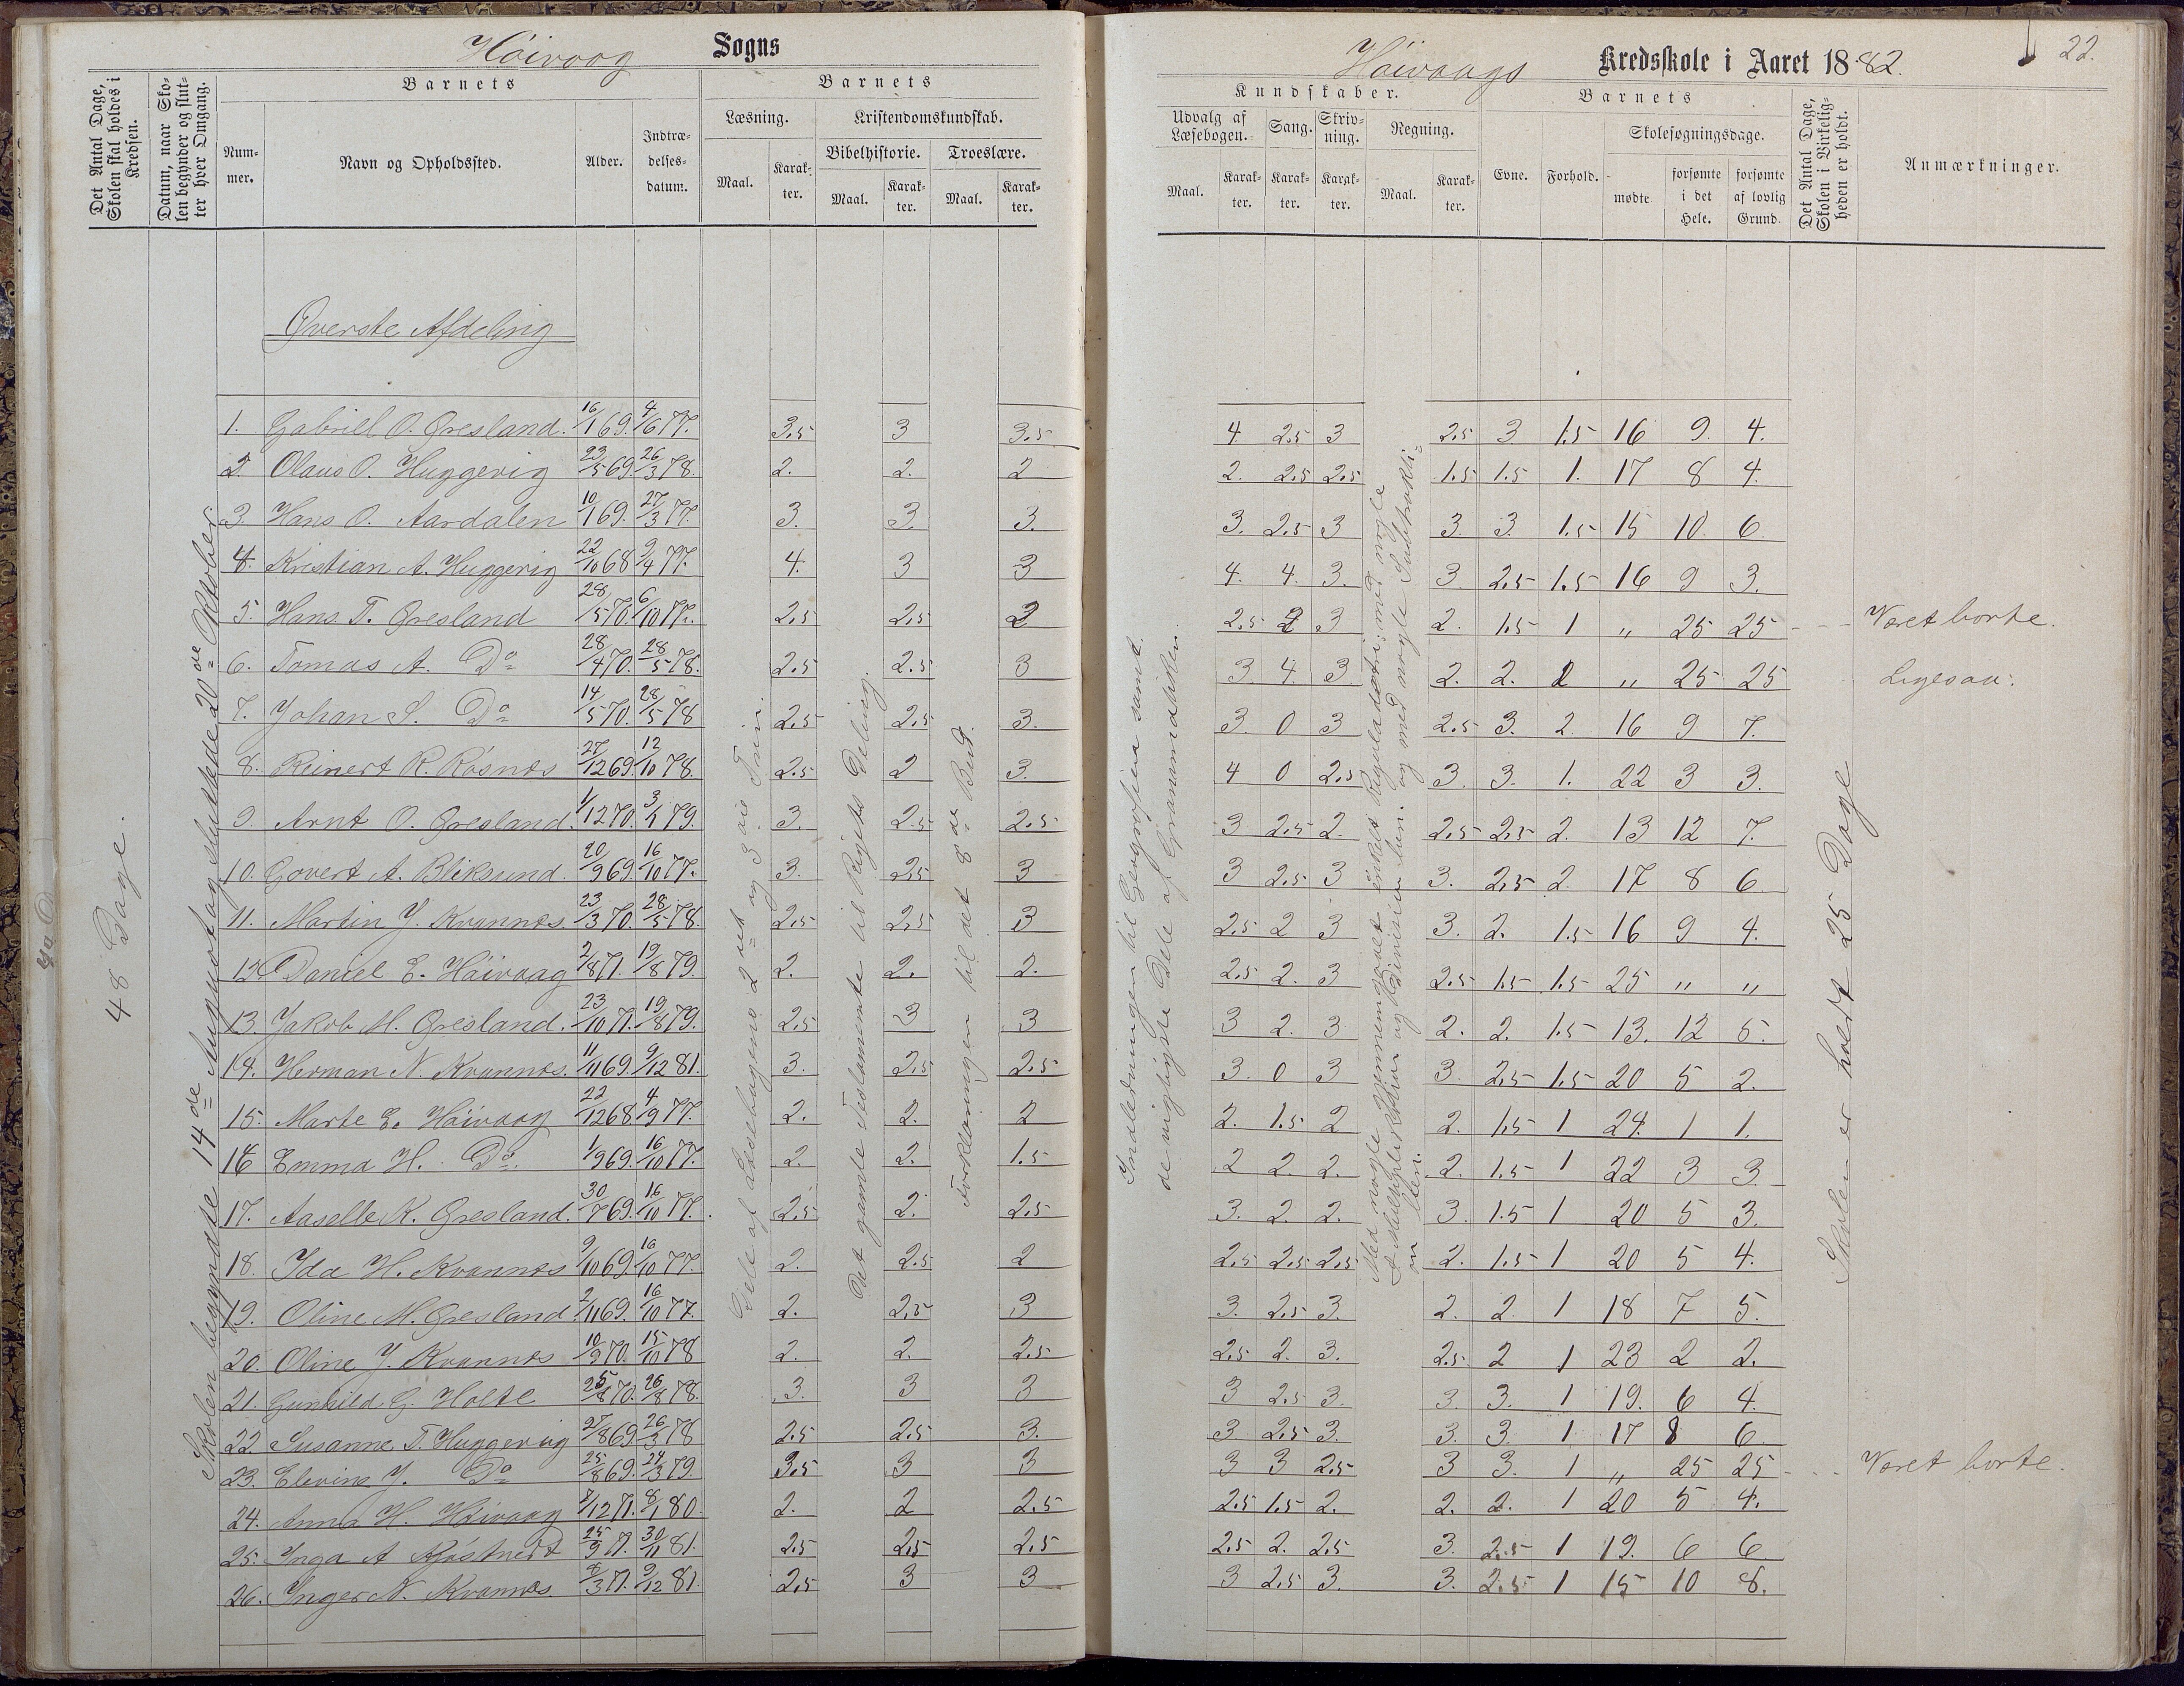 Höivaag Sogns
Det Antal Dage, Skolen skal holdes i Kredsen.
Datum, naar Skolen begynder og slutter hver Omgang.
Barnets
Barnets
Nummer.
Navn og Opholdssted.
Alder.
Indtrædelsesdatum.
Læsning.
Kristendomskundskab.
Maal.
Karakter.
Bibelhistorie.
Troeslære.
Maal.
Karakter.
Maal.
Karakter.
48 Dage.
Skolen begyndte 14de August og sluttede 20de Oktober.
Øverste Afdeling
1. Gabriel O. Øresland. 16/1 69. 4/6 77. 3.5 3 3.5
2 Olaus O. Huggevig 23/5 69. 26/3 78. 2. 2. 2
3. Hans O. Aardalen 10/1 69. 27/3 77. 3. 3. 3.
4. Kristian A. Huggevig 22/10 68 9/4 77. 4. 3 3
5. Hans T. Øresland 28/5 70. 6/10 77. 2.5 2.5 2
6. Tomas A. Do 28/4 70. 28/5 78. 2.5 2.5 3
7. Johan S. Do 14/5 70. 28/5 78 2.5 2.5 3.
8. Reinert R. Rösnæs 27/12 69. 12/10 78. 2.5 2 3.
9. Arnt O. Øresland. 1/12 70. 3/1 79. 3. 2.5 2.5
10. Govert A. Bliksund. 20/9 69. 16/10 77. 3. 2.5 3
11. Martin J. Kvannes. 23/3 70. 28/5 78. 2.5 2.5 3
12 Daniel E. Höivaag 2/8 71. 19/8 79. 2. 2. 2.
13. Jakob M. Øresland. 23/10 71. 19/8 79. 2.5 3 3
14. Herman N. Kvannes. 11/11 69. 9/12 81. 3. 2.5 2.5
15. Marte E. Höivaag 22/12 68 4/9 77. 2. 2. 2
16 Emma H. Do 1/9 69. 16/10 77. 2. 2. 1.5
17. Aaselle K. Øresland. 30/7 69. 16/10 77. 2.5 2. 2.5
18. Ida H. Kvannes 9/10 69. 16/10 77. 2. 2.5 2
19. Oline M. Øresland 2/11 69. 16/10 77. 2. 2.5 3
20. Oline J. Kvannes 10/9 70. 15/10 78 2. 2. 2.5
21. Gunhild G. Holte 25/8 70. 26/8 78. 3. 3 3
22 Susanne T. Huggevig 27/8 69. 26/3 78 2.5 2.5 3.
23. Elevine J. Do 25/8 69. 24/3 79. 3.5 3 3
24. Anna H. Höivaag /12 71. 8/1 80. 2. 2 2.5
25. Inga A 25/9 71. 30/11 81. 2.5 2.5 2.5
26. Inger N. Kvannes. /3 71. 9/12 81. 2.5 3 3
Dele af Læsebogens 2det og 3die Trin.
Det gamle Testamente til Rigets Deling.
Forklaringen til det 8de Bud.
Höivaags Kredsskole i Aaret 1882. 22.
Kundskaber.
Barnets
Udvalg af Læsebogen.
Sang.
Skrivning.
Regning.
Evne.
Forhold.
Skolesøgningsdage.
Maal.
Karakter.
Karakter.
Karakter.
Maal.
Karakter.
mødte
forsømte i det Hele.
forsømte af lovlig Grund.
Det Antal Dage, Skolen i Virkeligheden er holdt.
Anmærkninger.
Indledningen til Geografien samt
de vigtigste Dele af Grammatiken.
Med nogle gjennemgaaet enkelt Reguladetri; med nogle
Multiplikation og Division; og med nogle Subtraktionen
4 2.5 3 2.5 3 1.5 16 9. 4.
2. 2.5 2.5 1.5 1.5 1. 17 8 4.
3. 2.5 3 3. 3. 1.5 15 10. 6.
4. 4. 3. 3 2.5 1.5 16 9 3.
2.5 2 3 2. 1.5 1 " 25 25 Været borte.
3. 4. 3. 2. 2. 2 " 25 25 Ligesaa.
3. 0 3 2.5 3. 2. 16 9 7.
4 0 2.5 3. 3. 1. 22 3 3.
3 2.5 2. 2.5 2.5 2. 13 12 7.
3 2.5 3 3. 2.5 2. 17 8 6
2.5 2 3 3. 2. 1.5 16 9 4.
2.5 2. 3 2.5 1.5 1.5 25 " "
3 2. 3 2. 2. 1.5 13. 12 5.
3. 0 3 3. 2.5 1.5 20 5 2.
2. 1.5 2 2. 1.5 1 24. 1 1.
2 2 2. 2. 1.5 1 22 3 3.
3. 2. 2. 3. 1.5 1 20 5 3.
2.5 2.5 2.5 2. 1.5 1 20 5 4.
3. 2.5 3. 2. 2. 1 18 7 5.
2.5 2. 3. 2.5 2 1 23 2 2.
3 2.5 3. 3. 3. 1 19. 6 4.
3 2.5 3. 3. 3. 1 17 8 6
3 3 2.5 3 3. 1 " 25 25 Været borte.
2.5 1.5 2. 2. 2. 1 20 5 4.
2.5 2. 2.5 3. 2.5 1 19. 6 6
3 2.5 3. 3. 2.5 1 15 10 8.
Skolen er holdt 25 Dage